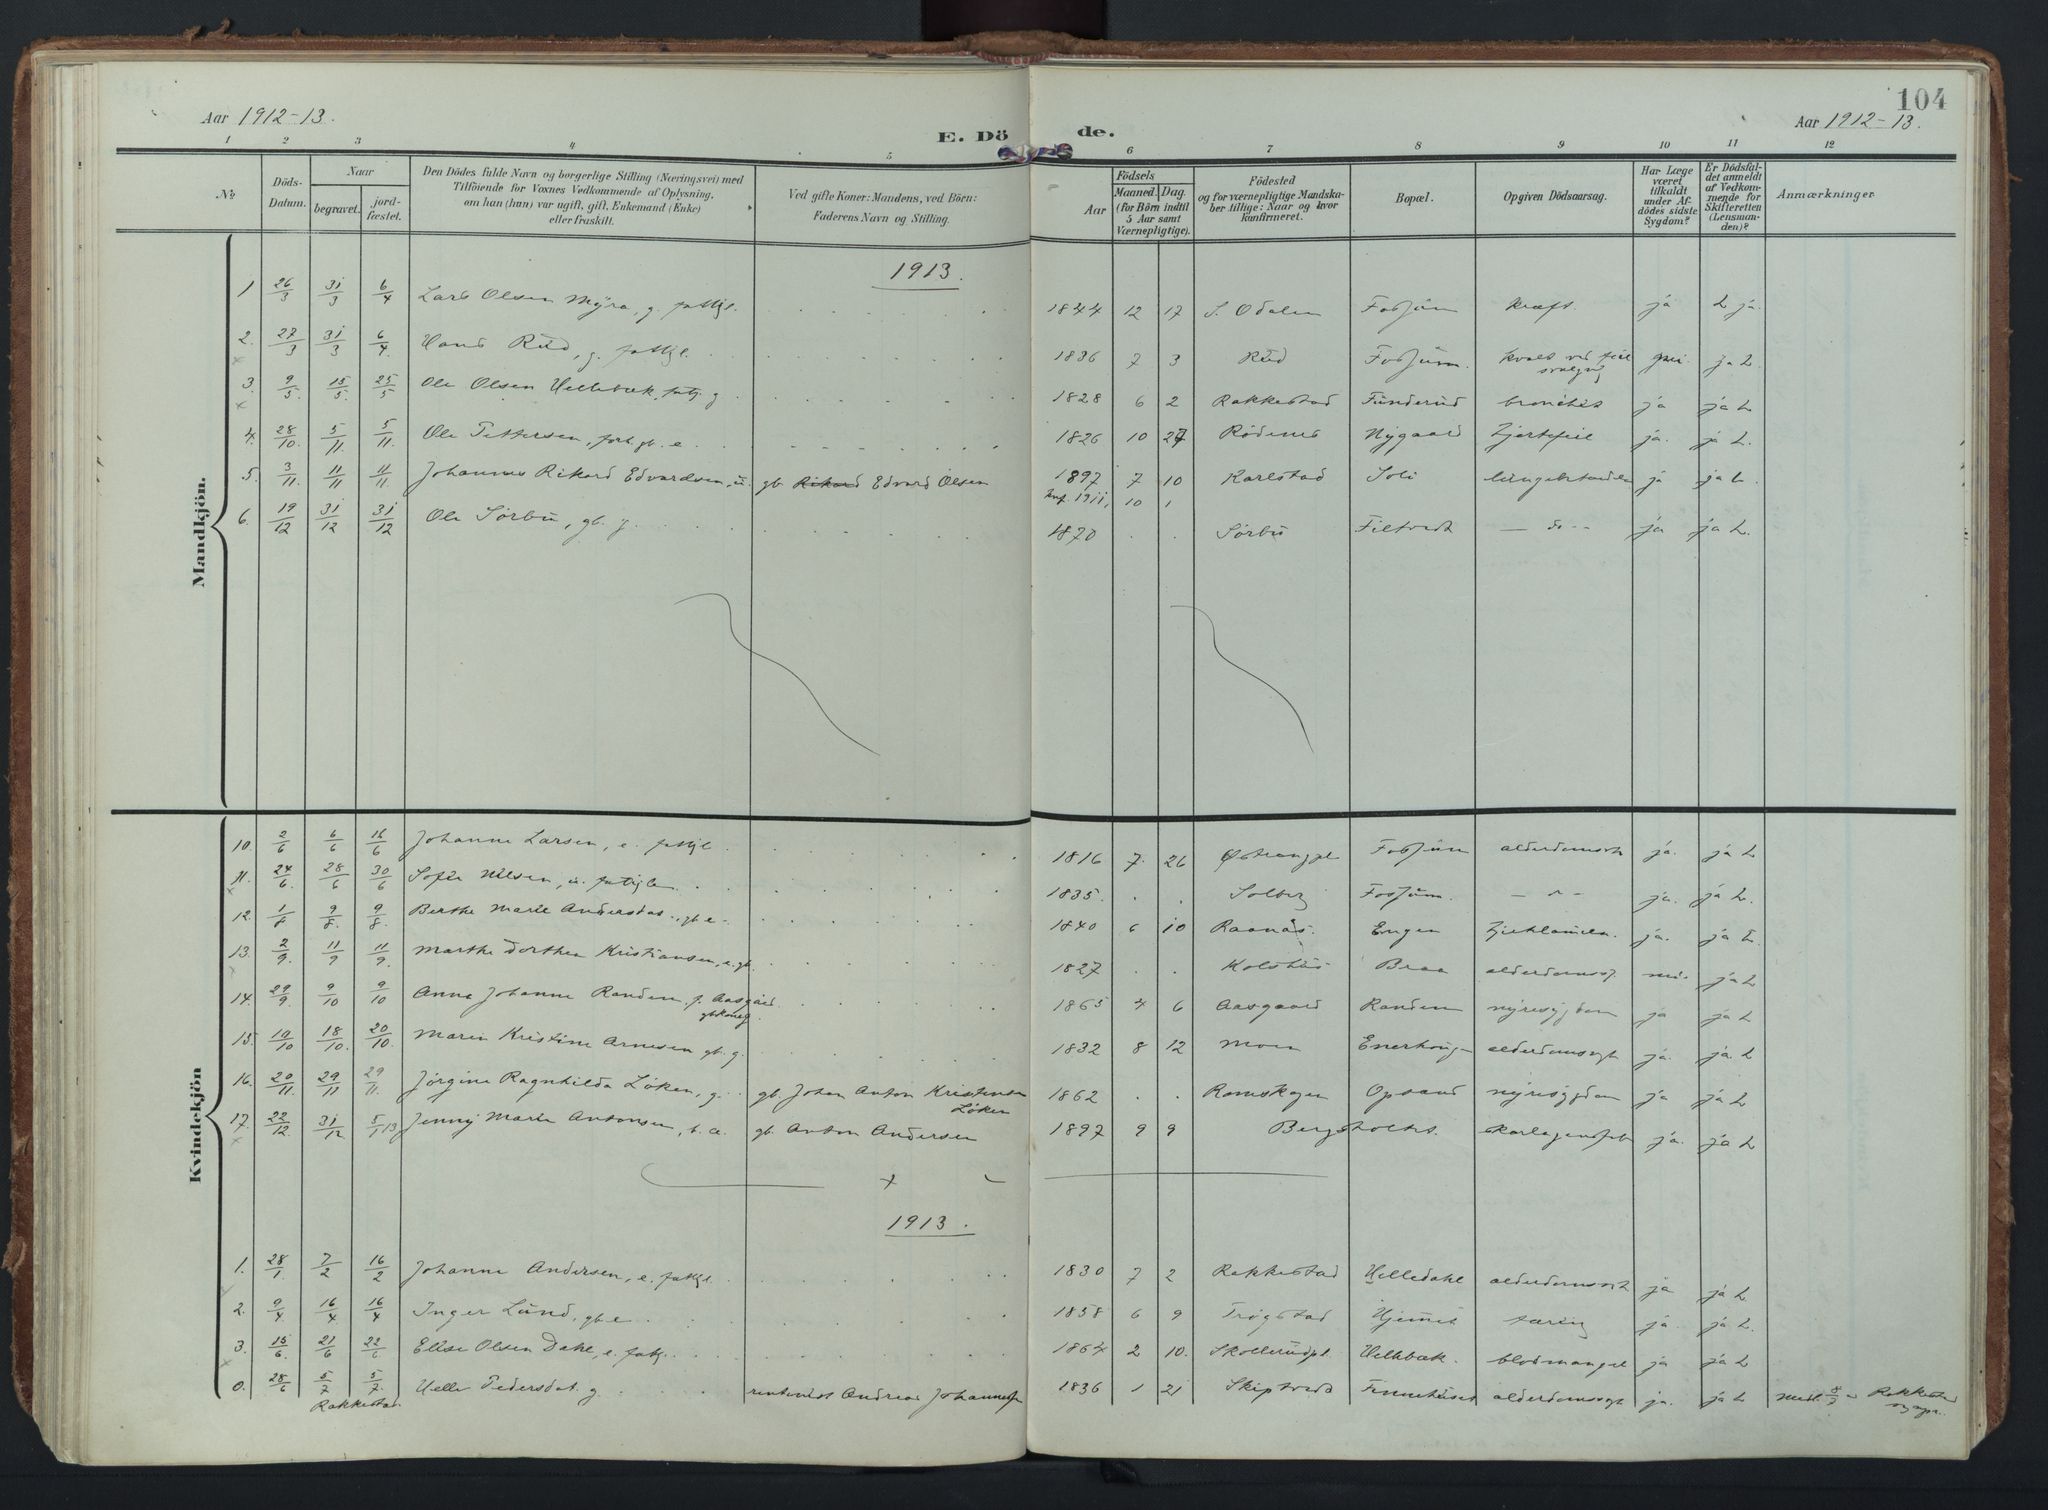 104
Aar 1912-13.
E. Döde.
Aar 1912-13.
1 2 3 4 5 6 7 8 9 10 11 12
No. Döds-Datum. Naar begravet. jord-fæstet. Den Dödes fulde Navn og borgerlige Stilling (Næringsvei) med Tilföiende for Voxnes Vedkommende af Oplysning, om han (hun) var ugift, gift, Enkemand (Enke) eller fraskilt. Ved gifte Koner: Mandens, ved Börn: Faderens Navn og Stilling. Aar Födsels Maaned. Dag. (for Börn indtil 5 Aar samt Værnepligtige). Födested og for værnepligtige Mandskaber tillige: Naar og hvor konfirmeret. Bopæl. Opgiven Dödsaarsag. Har Læge været tilkaldt under Afdödes sidste Sygdom? Er Dödsfaldet anmeldt af Vedkommende for Skifteretten (Lensmanden)? Anmærkninger
Mandkjön.
1913.
1 26/3 31/3 6/4 Lars Olsen Myra, g. 1844 12 17 S. Odalen Fosjum kræft. ja L ja.
2. 27/3 31/3 6/4 Hans Rud, g. 1836 7 3 Rud Fosjum. kvalt ved ja L.
3. 9/5. 15/5. 25/5 Ole Olsen Hellebæk, g 1828 6 2 Rakkestad Funderud bronchit ja ja L
4. 28/10. 5/11. 5/11. Ole Pettersen, gb. e. 1826 10 27 Rödenes Nygaard hjertefeil ja. ja L.
5. 3/11. 11/11 11/11. Johannes Rikard Edvardsen, u. gb. Rikard Edvard Olsen 1897 7 10 Karlstad Soli ja ja L.
1911, 10 1
6. 19/12 31/12 31/12 Ole Sörbu, gb. g. 1870 . . Sörbu Filtvedt — do -- ja ja L.
Kvindekjön
10. 2/6 6/6 16/6 Johanne Larsen, e. 1816 7. 26 Fosjum alderdomssvk ja. ja L
11. 24/6. 28/6 30/6 Sofie Nilsen, u. 1835. . . Solberg Fosjum. — " - ja. ja L.
12. 1/8 9/8. 9/8. Berthe Marie Andersdat., gb. e. 1840 6 10 Raanås. Engen ja. ja L.
13. 2/9. 11/9 11/9. Marthe Dorthea Kristiansen, e. gb. 1827 . . Kolshus Braa ja L
14. 29/9. 9/10 9/10 Anna Johanne Randem f. Aasgård 1865 4 6 Aasgaard Randem nyresygdom ja ja L
15. 10/10 18/10. 20/10. Maren Kristine Arnesen gb. g. 1832 8 12 Moen alderdomssyt ja. ja. L
16. 20/11. 29/11 29/11. Jörgine Ragnhilda Löken, g. gb. Johan Anton Kristensen Löken 1862 . . Romskogen Opsand nyresygdom ja ja L
17. 22/12. 31/12 5/1 13 Jenny Marie Antonsen, gb. Anton Andersen 1897 9 9 Bergsholtet. skarlagensfeb ja. ja L
1913.
1. 28/1. 7/2 16/2 Johanne Andersen, e. 1830 7 2 Rakkestad Helledahl alderdomssvk ja ja L
2. 9/4 16/4 16/4 Inger Lund, gb. e 1858 6 9 Trögstad tæring ja. ja L.
3. 15/6. 21/6 22/6 Elise Olsen Dahl, e. 1864 2 10. Hellebæk. blodmangel ja ja L
0. 28/6 5/7 5/7. Helle Pedersdat. g. Andreas Johannesen 1836 1 21 Skiptvedt alderdomssvgt ja. ja L
Rakkestad.